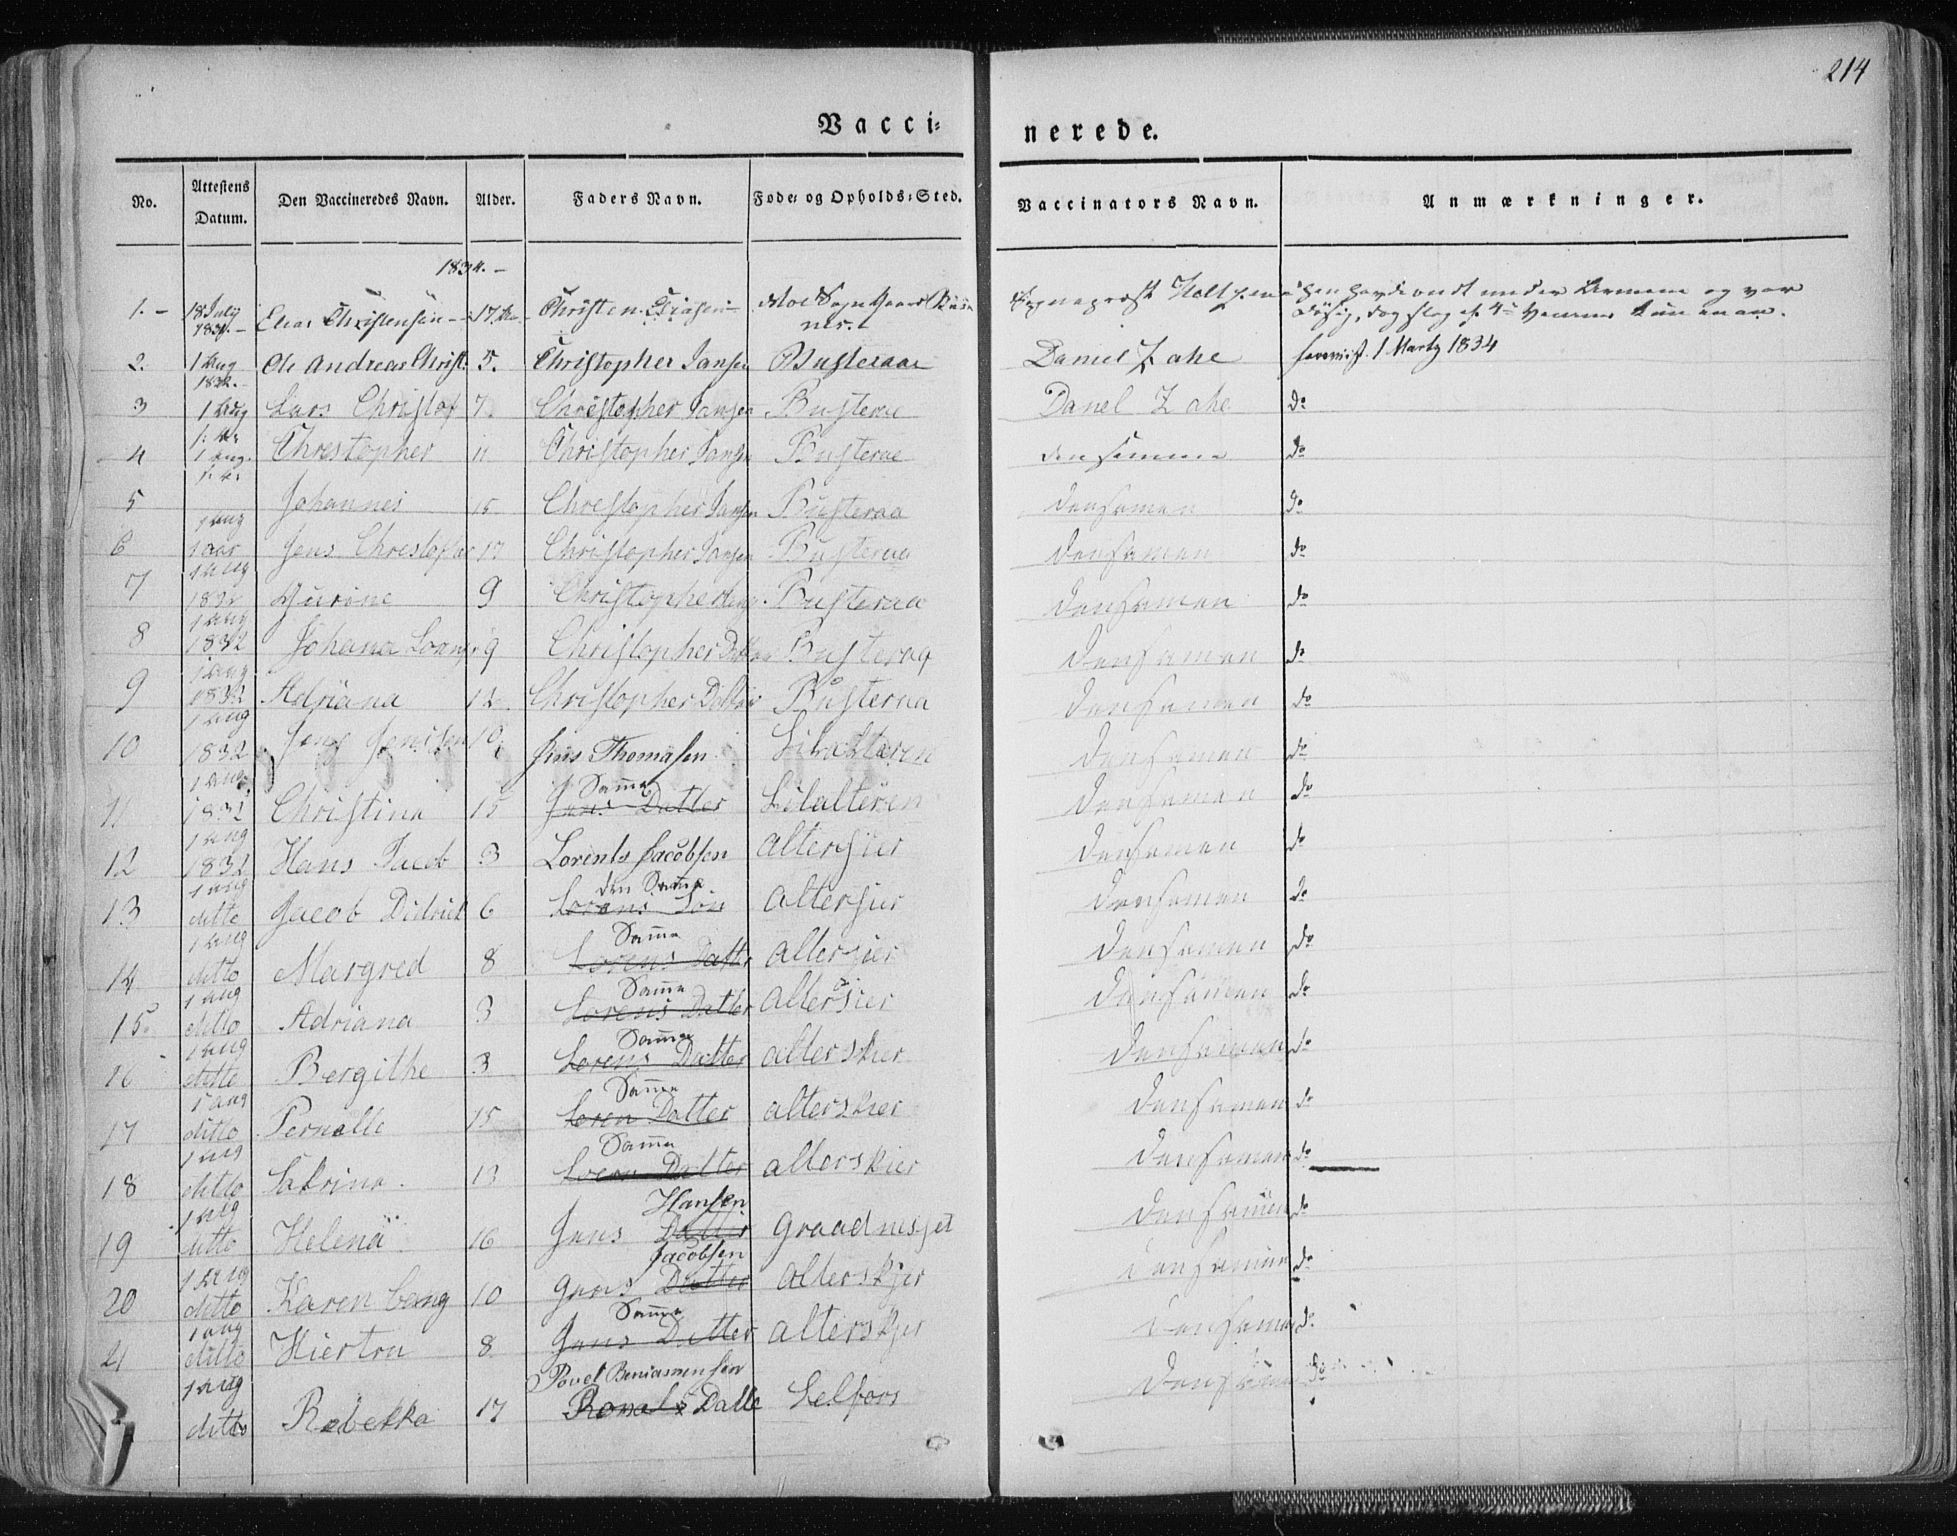 214
Vacci=
nerede.
No. Attestens Datum. Den Vaccineredes Navn. Alder. Faders Navn. Føde= og Opholds=Sted. Vaccinators Navn. Anmærkninger.
1834. –
1. – 18 July 1834. – Elias Christensen – 17 Christen Sognepræst
2. 1 Aug 1832. – Ole Andreas Christ. 5. Christopher Jansen Busteraae Daniel Zahe forevist 1 Marty 1834
3 1 Aug Lars Christof 7. Christopher Jansen Busterae Danel Zahe do
4 1 aug. Chrestopher 11 Christopher Jansen Busterae den samme do
5 Johannes 15 Chrestopher Jansen Busteraa densamen do
6 1 aug 1 aar Jens Chrestoffer 17 Christopher Jansen Busteraa densamen do
7 1 aug 1832 Gurine 9 Christopher Busteraa densamen do
8 1 aug 1832 Johana 9 Christopher Datter Busteraa densamen do
9 1 aug 1832 Adriana 12. Christopher Datter Busteraa densamen do
10 1 aug 1832 Jens Jensen 10. Jens Thomasen Lilalteren densamen do
Samme
11 1 aug. 1832 Christina 15 Jens Datter Lilalteren densamen do
12 1 aug 1832 Hans Jacob 3 Lorents Jacobsen altersier densamen do
den Samme
13 1 aug ditto Jacob Didrick 6 Lorens Søn altersier densamen do
Samme
14 1 aug ditto Margred 8 Lorens Datter altersier densamen do
Samme
15. 1 aug ditto Adriana 3 Lorens Datter altersier densamen do
Samme
16 1 aug ditto Bergithe 3 Lorens Datter alterskier densamen do
Samme
17 1 aug ditto Pernelle 15 Loren Datter alterskier densamen do
Samme
18 1 aug ditto Sabrina. 13 Loren Datter alterskier densamen do
Hansen
19 1 aug ditto Helena 16 Jens Datter Graadnesjet densamen do
Jacobsen
20 1 aug ditto Karen 10 Jens Datter alterskjer densamen do
Samme
21 1 aug ditto Hiertru 8. Jens Datter alterskjer densamen do
Povel Beniamensen
1 aug ditto Rebekka 17 Datte Selfors densamen do